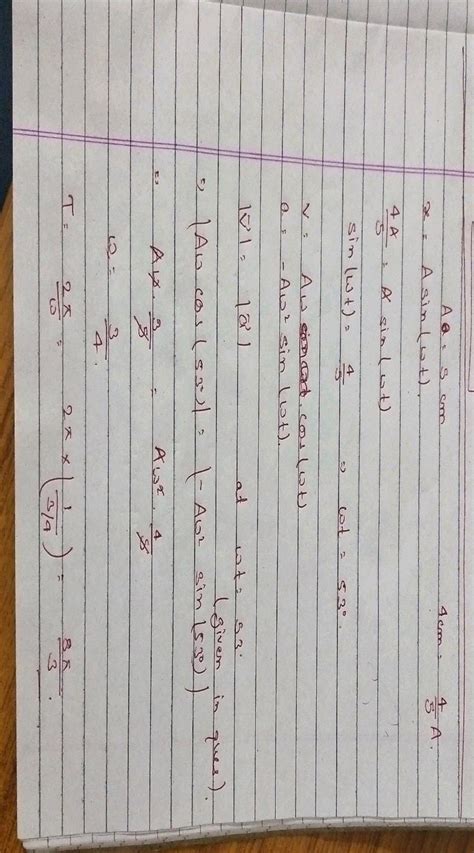 A = 5 cm 4cm = 4/5 A.
x = A sin(ωt).
4A/5 = A sin(ωt)
sin(ωt) = 4/5 ⇒ ωt = 53°.
v = Aω cos(ωt)
a = -Aω² sin(ωt).
|v̄| = |ā| at ωt = 53°
(given in ques).
⇒ |Aω cos(53°)| = |-Aω² sin(53°)|
⇒ Aω · 3/5 = Aω² · 4/5
ω = 3/4.
T = 2π/ω = 2π × (1/3/4) = 8π/3.